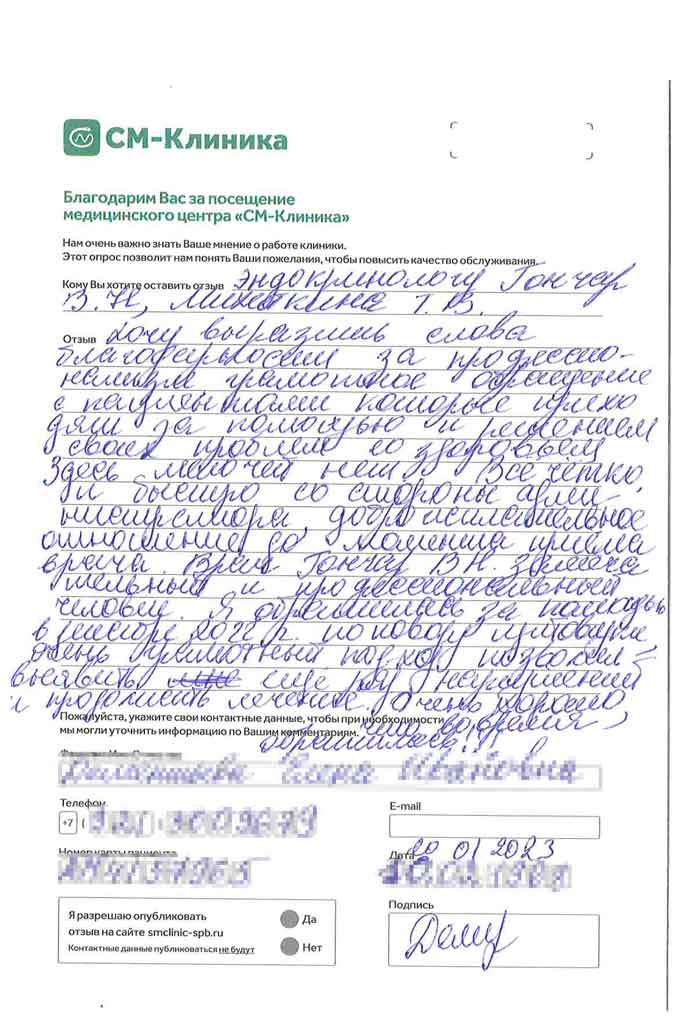 СМ-Клиника
Благодарим Вас за посещение
медицинского центра «СМ-Клиника»
Нам очень важно знать Ваше мнение о работе клиники.
Этот опрос позволит нам понять Ваши пожелания, чтобы повысить качество обслуживания.
Кому Вы хотите оставить отзыв эндокринологу Гончар
В. Н, Т. В.
Отзыв Хочу выразить слова
благодарности за профессио-
нализм грамотное обращение
с пациентами которые прихо
дят за помощью и решением
своих проблем со здоровьем
Здесь мелочей нет. Все четко
и быстро со стороны адми-
нистратора, доброжелательное
отношение до момента приема
врача. Врач Гончар В Н. замеча
тельный и профессиональный
человек. Я обратилась за помощью
в 2022 г. по поводу щитовидки
Очень грамотный подход позволил
выявить еще ряд нарушений
и продолжить лечение. Очень хорошо
что вовремя
обратилась!
Пожалуйста, укажите свои контактные данные, чтобы при необходимости
мы могли уточнить информацию по Вашим комментариям.
Телефон
+7 (
E-mail
Номер карты пациента
Дата 20 01 2023
Подпись
Я разрешаю опубликовать
отзыв на сайте smclinic-spb.ru
Контактные данные публиковаться не будут
Да
Нет